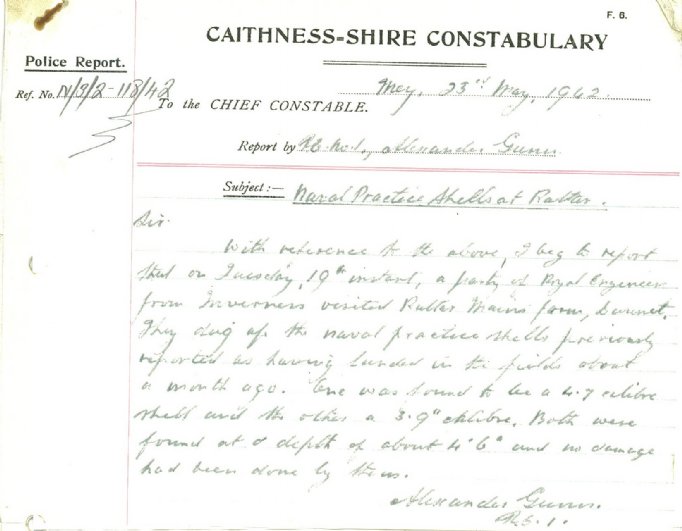 F. 6.
CAITHNESS=SHIRE CONSTABULARY
Police Report.
Ref. No. N/3/2-118/42
Mey, 23rd May, 1942.
To the CHIEF CONSTABLE.
Report by P.C. No 1, Alexander Gunn
Subject:— Naval Practice Shells at Rattar.
Sir
With reference to the above, I beg to report
that on Tuesday, 19th instant, a party of Royal Engineers
from Inverness visited Rattar Mains farm, Dunnet.
They dug up the naval practice shells previously
reported as having landed in the fields about
a month ago. One was found to be a 4.7 calibre
shell and the other a 3.9" calibre. Both were
found at a depth of about 4' 6" and no damage
had been done by them.
Alexander Gunn.
P.C. 1.